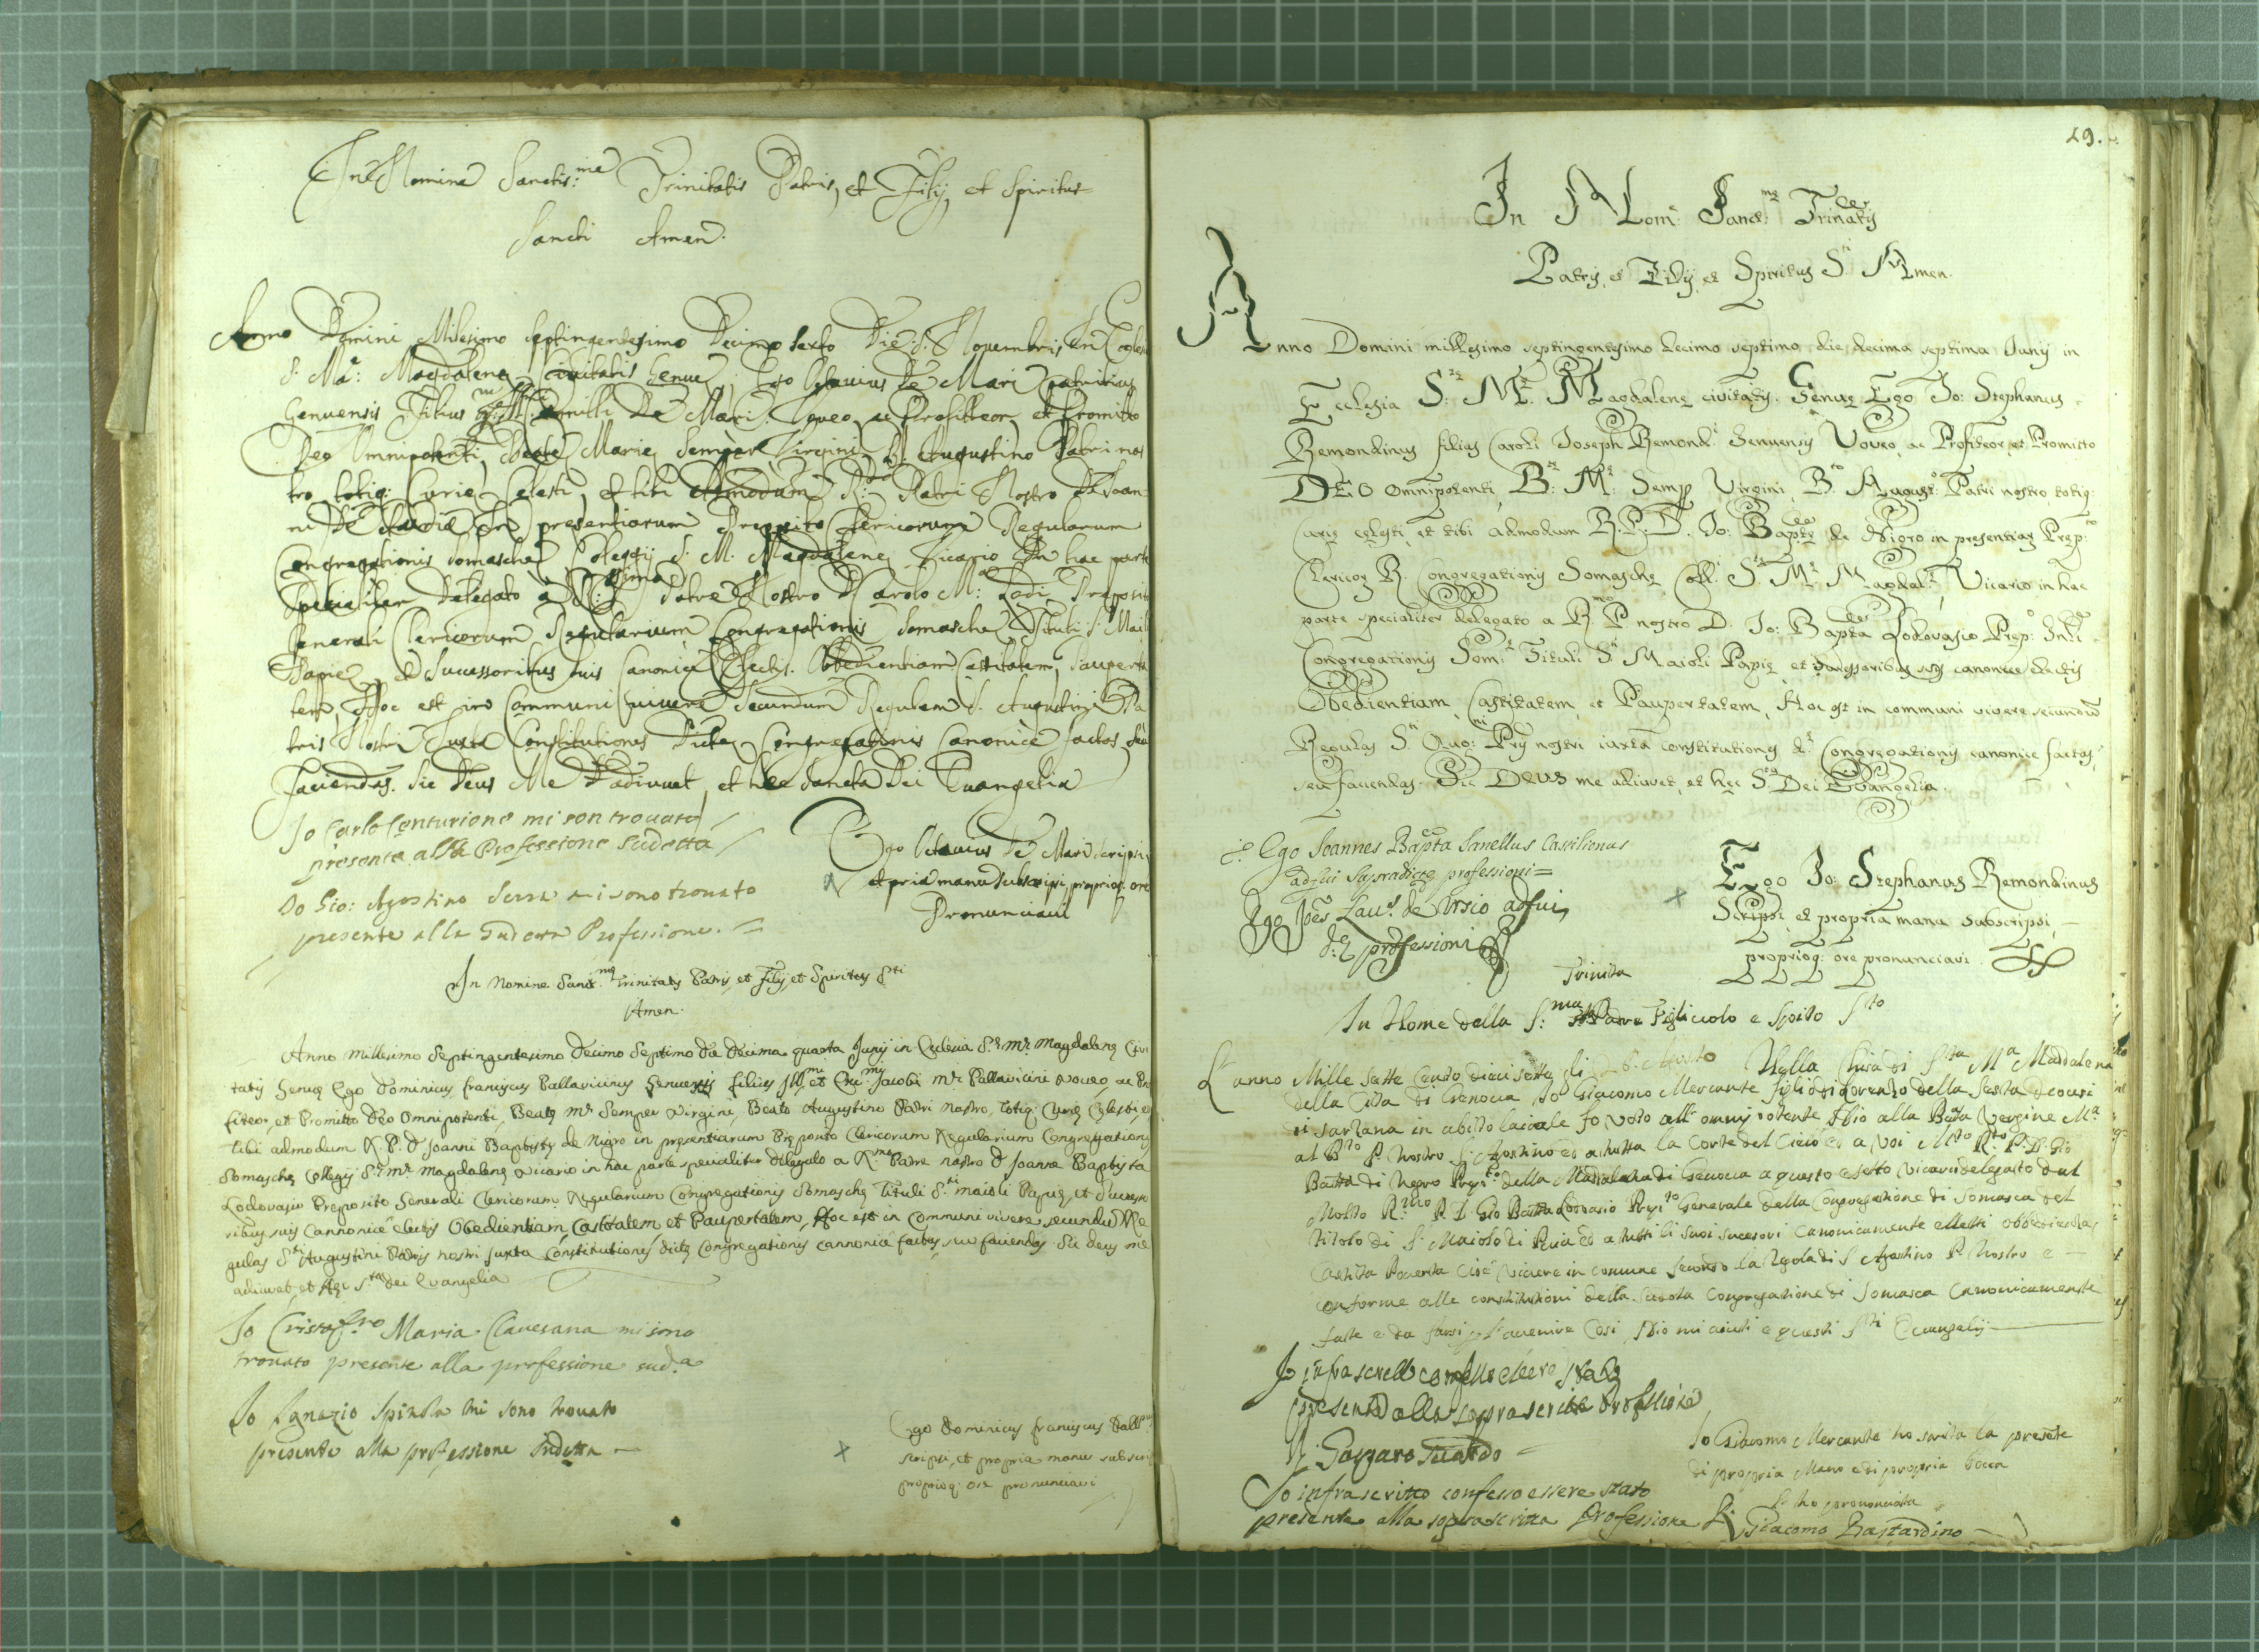 In Nomine Sanctis:me Trinitatis Patris, et Filij, et Spiritus
Sancti Amen.
Anno Domini Milesimo septingentesimo Decimo sexto Die Nouembris, In Eccles
S. Ma: Magdalene Civitatis Genue, Ego Octauius De Mari Patritius
Genuensis Filius Camilli De Mari. Voueo, ac Profitteor, et Promitto
Deo Omnipotenti, Beate Marie semper Virgini, B. Augustino Patri nos
tro, totiq; Curie Celesti, et tibi Admodum R:do Patri Nostro D. Ioan
ni De in presentiarum Preposito Clericorum Regularum
Congregationis Somasche Collegij S. M. Magdalene, Vicario In hac parte
Specialiter Delegato a Patre Nostro D. Carolo M: Lodi, Preposit
Generali Clericorum Regularium Congregationis Somasche Tituli S. Maio
Papie, et Successoribus suis Canonice Electis. Obbedientiam Castitatem, Pauperta
tem, Hoc est in Communi uiuere secundum Regulam S. Augustini Pa
tris Nostri Iuxta Constitutiones Dicte Congregationis Canonice factas, seu
Faciendas. Sic Deus Me Adiuuet, et hec Sancta Dei Euangelia
Io Carlo Centurione mi son trouato
presente alla Professione sudetta
Io Gio: Agostino Serra mi sono trouato
presente alla sudetta Professione.
Ego Octauius De Mari scripsi,
et pria manu subscripsi, proprioq. ore
Pronunciaui
In Nomine Sanct.me Trinitatis Patris, et Filij, et Spiritus S.ti
Amen.
Anno Millesimo Septingentesimo Decimo Septimo die decima quarta Junij in Eclesia S.e M.e Magdalene Ciui
tatis Genue Ego Dominicus Franciscus Pallavicinus Genuensis filius Ill.mi et Ex.mi Jacobi M.e Pallavicini voueo, ac Pro
fiteor, et Promitto Deo Omnipotenti, Beate M.e Semper Virgini, Beato Augustino Patri Nostro, totiq: Curie Celesti, et
tibi admodum R. P. D Joanni Baptiste de Nigro in presentiarum Preposito Clericorum Regularium Congregationis
Somasche Collegij S.e M.e Magdalene Vicario in hac parte specialiter delegato a R.mo Patre nostro D Joanne Baptista
Lodovasio Preposito Generali Clericorum Regularium Congregationis Somasche Tituli S.ti Maioli Papie, et Success
ribus suis Cannonicè electis Obedientiam, Castitatem, et Paupertatem, Hoc est in Communi vivere secundum Re
gulas S.ti Augustini Patris nostri juxta Constitutiones dicte Congregationis cannonicè factas, seu faciendas Sic deus me
adiuvet et hec S.ta dei Evangelia
Io Cristof.ro Maria Clauesana mi sono
trouato presente alla professione sud.a
Io Ignazio Spinola mi sono trouato
presente alla professione sudetta
Ego Dominicus Franciscus Pall
scripsi, et propria manu subscri
proprioq: ore pronunciavi
29.
In Nom: Sanct:me Trinitatis
Patris, et Filij, et Spiritus S.ti Amen.
Anno Domini millesimo septingentesimo decimo septimo, die decima septima Junij in
Ecclesia S:te M:e Magdalene civitatis Genue Ego Jo: Stephanus
Remondinus filius Caroli Joseph Remond:i Genuensis Voveo, ac Profiteor, et Promitto
DEO Omnipotenti, B:te M:e Semp Virgini, B:to August:o Patri nostro, totiq:
Curie celesti, et tibi admodum R.P.D. Jo: Bapte de Nigro in presentiar Prep:to
Clericor R. Congregationis Somasche Coll:i S:te M:e Magdal:e, Vicario in hac
parte specialiter delegato a R.mo P. nostro D. Jo: Bapta Lodovasio Prep:o Gnli
Congregationis Som:e Tituli S:ti Maioli Papie, et successoribus suis canonice electis
Obedientiam, Castitatem, et Paupertatem, Hoc est in communi vivere secundu
Regulas S:ti Aug:ni Pris nostri iuxta constitutiones d:e Congregationis canonice factas,
seu faciendas. Sic DEUS me adiuvet, et hec S:ta Dei Evangelia.
Ego Joannes Bapta Sanellus Castilionus
adfui supradicte professioni
Ego Jo:es Lau.s de Ursio adfui
d:e professioni
Ego Jo: Stephanus Remondinus
Scripsi, et propria manu subscripsi,
proprioq: ore pronunciavi.
Trinita
In Nome della S:ma Padre Figliuolo e Spito S.to
L'anno Mille sette Cento dieci sette gli 26 Nella Chiesa di S.ta M.a Maddalena
della Città di Genoua Io Giacomo Mercante figlio di Lorenzo della
di Sarzana in abito laicale fo voto all' omnipotente Iddio alla Bata Vergine M.a
al B.to P. Nostro S. Agostino ed a tutta la Corte del Cielo ed a voi M.to R.do P. D. Gio
Batta di Negro Prep.to della Maddalena di Genoua a questo efetto vicario delegato dal
Molto R.mo P. D. Gio Batta Lodouasio Prep.to Generale della Congregatione di Somasca del
titolo di S. Maiolo di Pauia ed a tutti li suoi sucesori Canonicamente elletti obbedienza
Castita Pouerta Cioè viuere in comune secondo la Regola di S. Agostino P. Nostro e
conforme alle constitutioni della sudetta Congregatione di Somasca Canonicamente
fatte e da farsi p l'auenire Cosi Iddio mi aiuti e questi S.ti Euangelij
Io infrascritto confesso essere stato
presente alla sopra scritta professione
Gaspare
Io Giacomo Mercante ho scritta la presente
di propria Mano e di propria bocca
l'ho prononciata
Io infrascritto confesso essere stato
presente alla soprascritta Professione Giacomo Bastardino